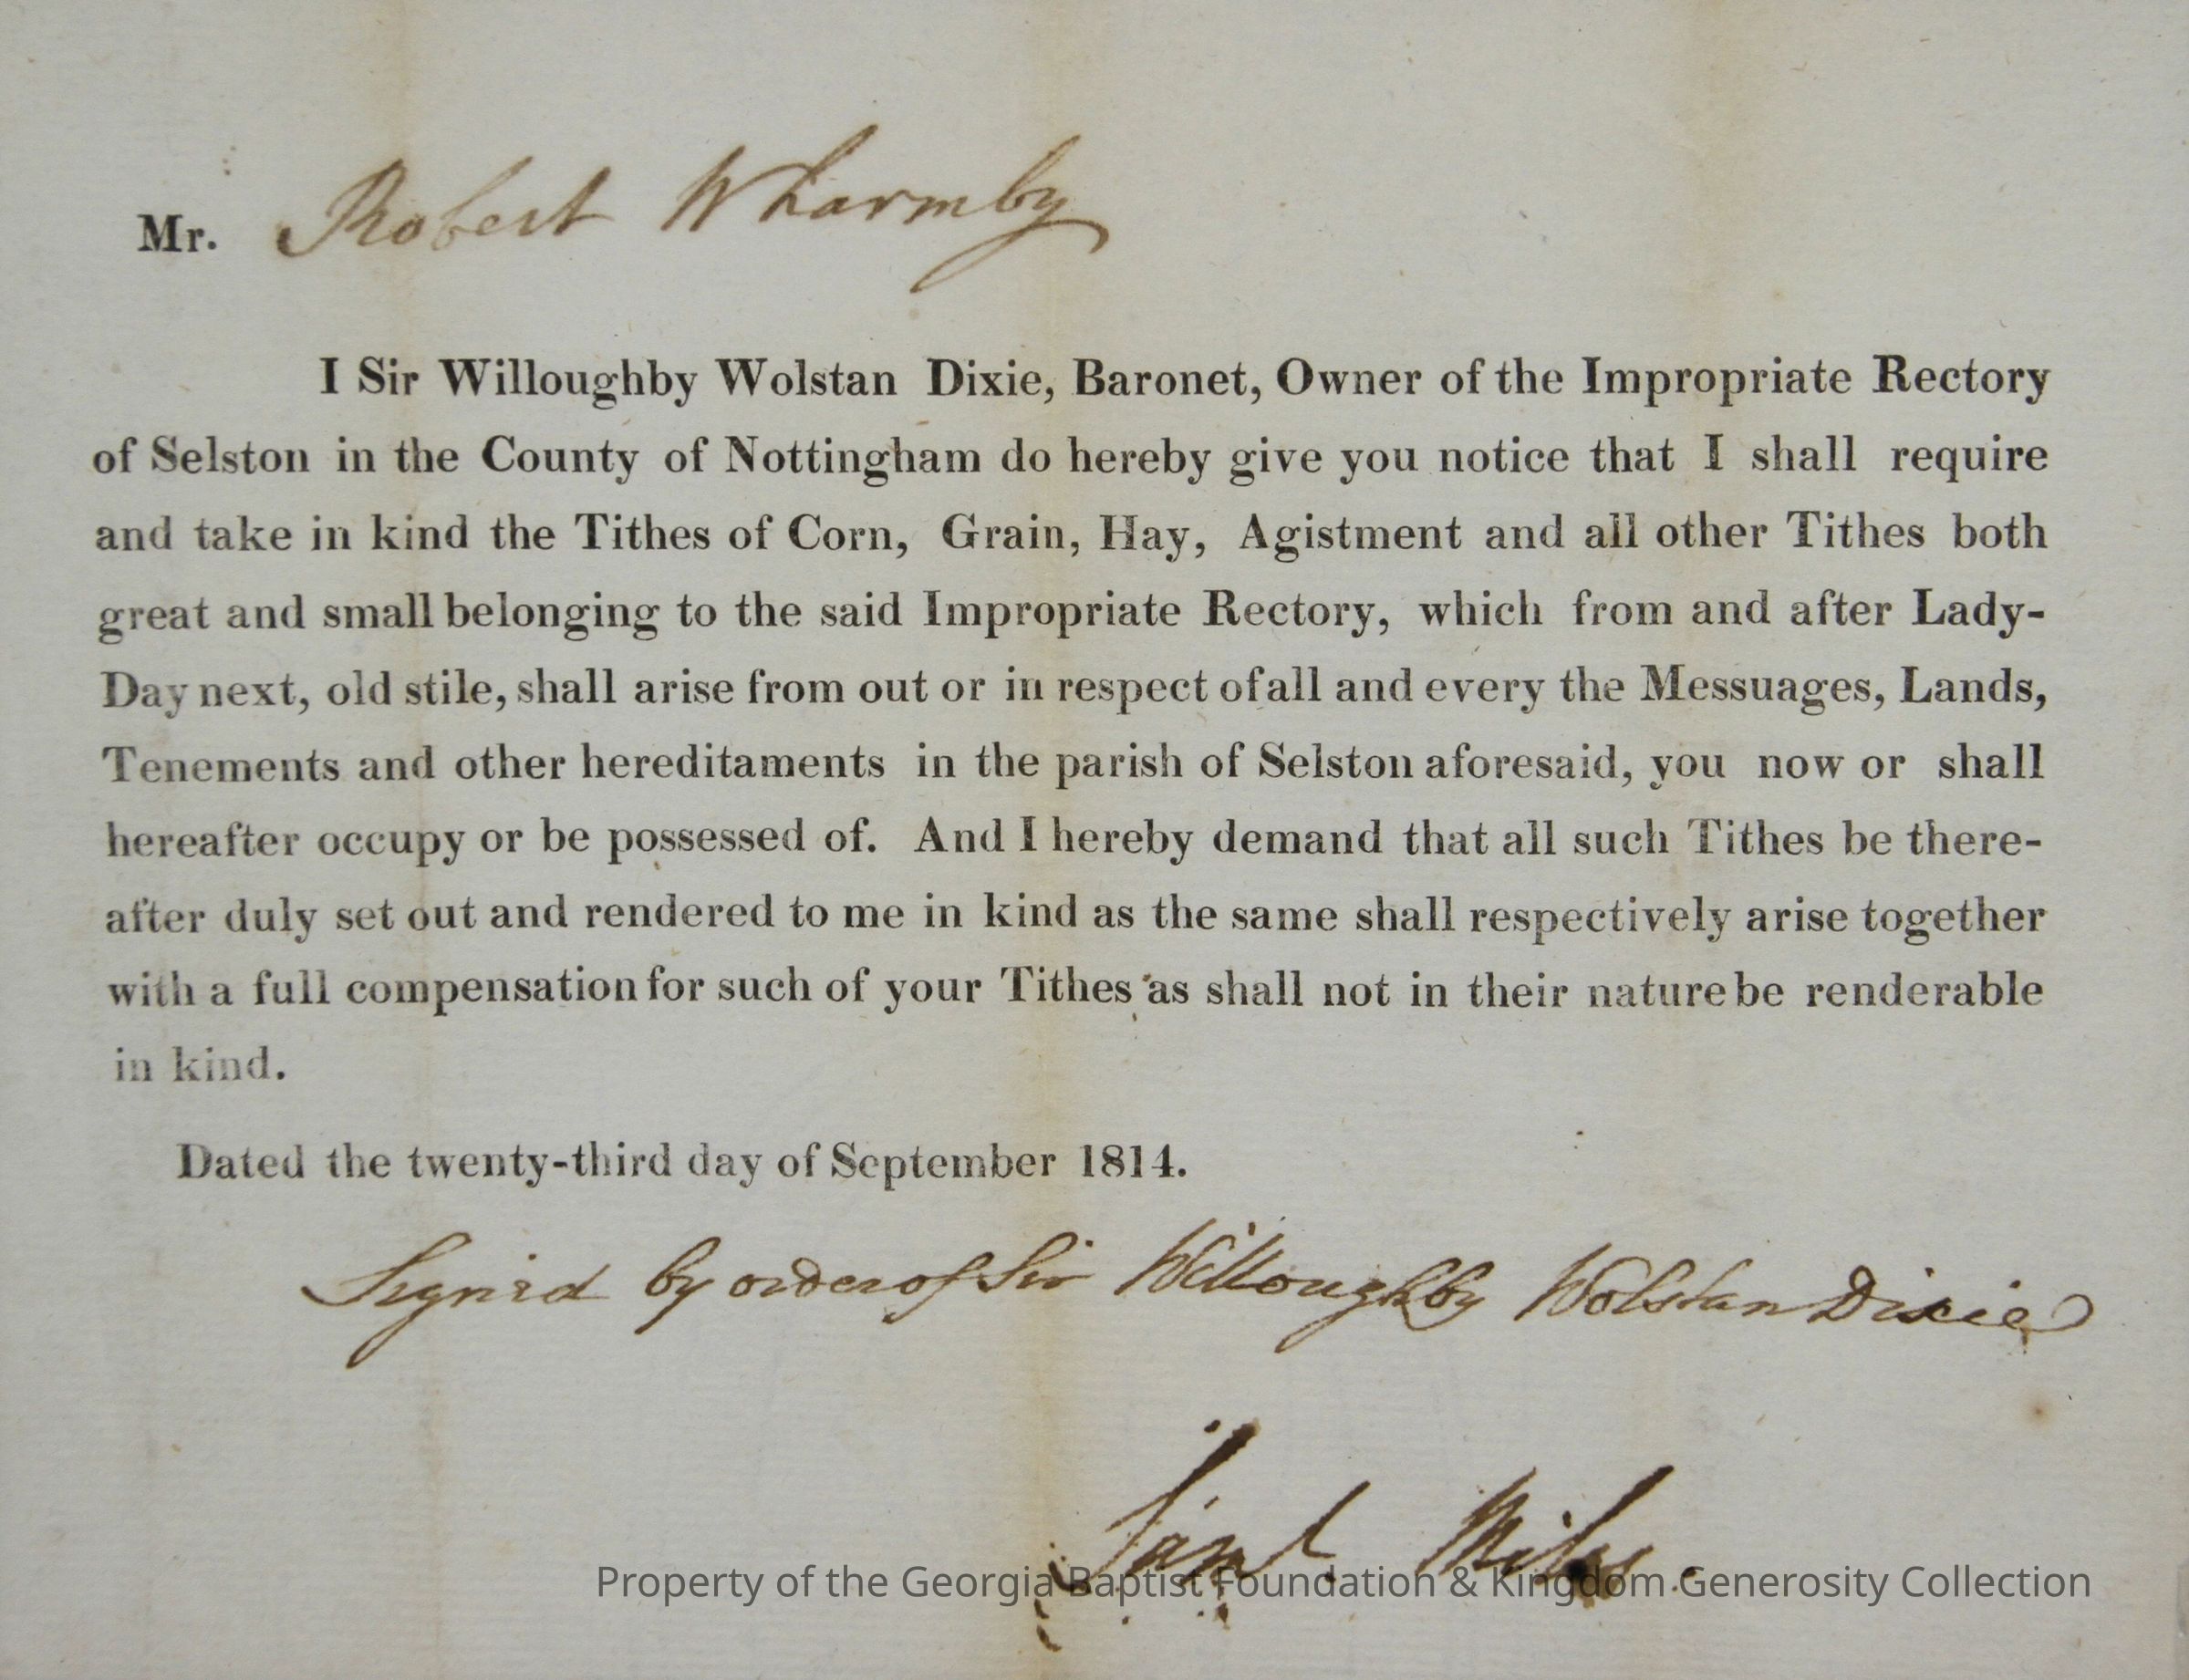 Mr. Robert Wharmby
I Sir Willoughby Wolstan Dixie, Baronet, Owner of the Impropriate Rectory
of Selston in the County of Nottingham do hereby give you notice that I shall require
and take in kind the Tithes of Corn, Grain, Hay, Agistment and all other Tithes both
great and small belonging to the said Impropriate Rectory, which from and after Lady-
Day next, old stile, shall arise from out or in respect of all and every the Messuages, Lands,
Tenements and other hereditaments in the parish of Selston aforesaid, you now or shall
hereafter occupy or be possessed of. And I hereby demand that all such Tithes be there-
after duly set out and rendered to me in kind as the same shall respectively arise together
with a full compensation for such of your Tithes as shall not in their nature be renderable
in kind.
Dated the twenty-third day of September 1814.
Signed by order of Sir Willoughby Wolstan Dixie
Saml. Miles
Property of the Georgia Baptist Foundation & Kingdom Generosity Collection